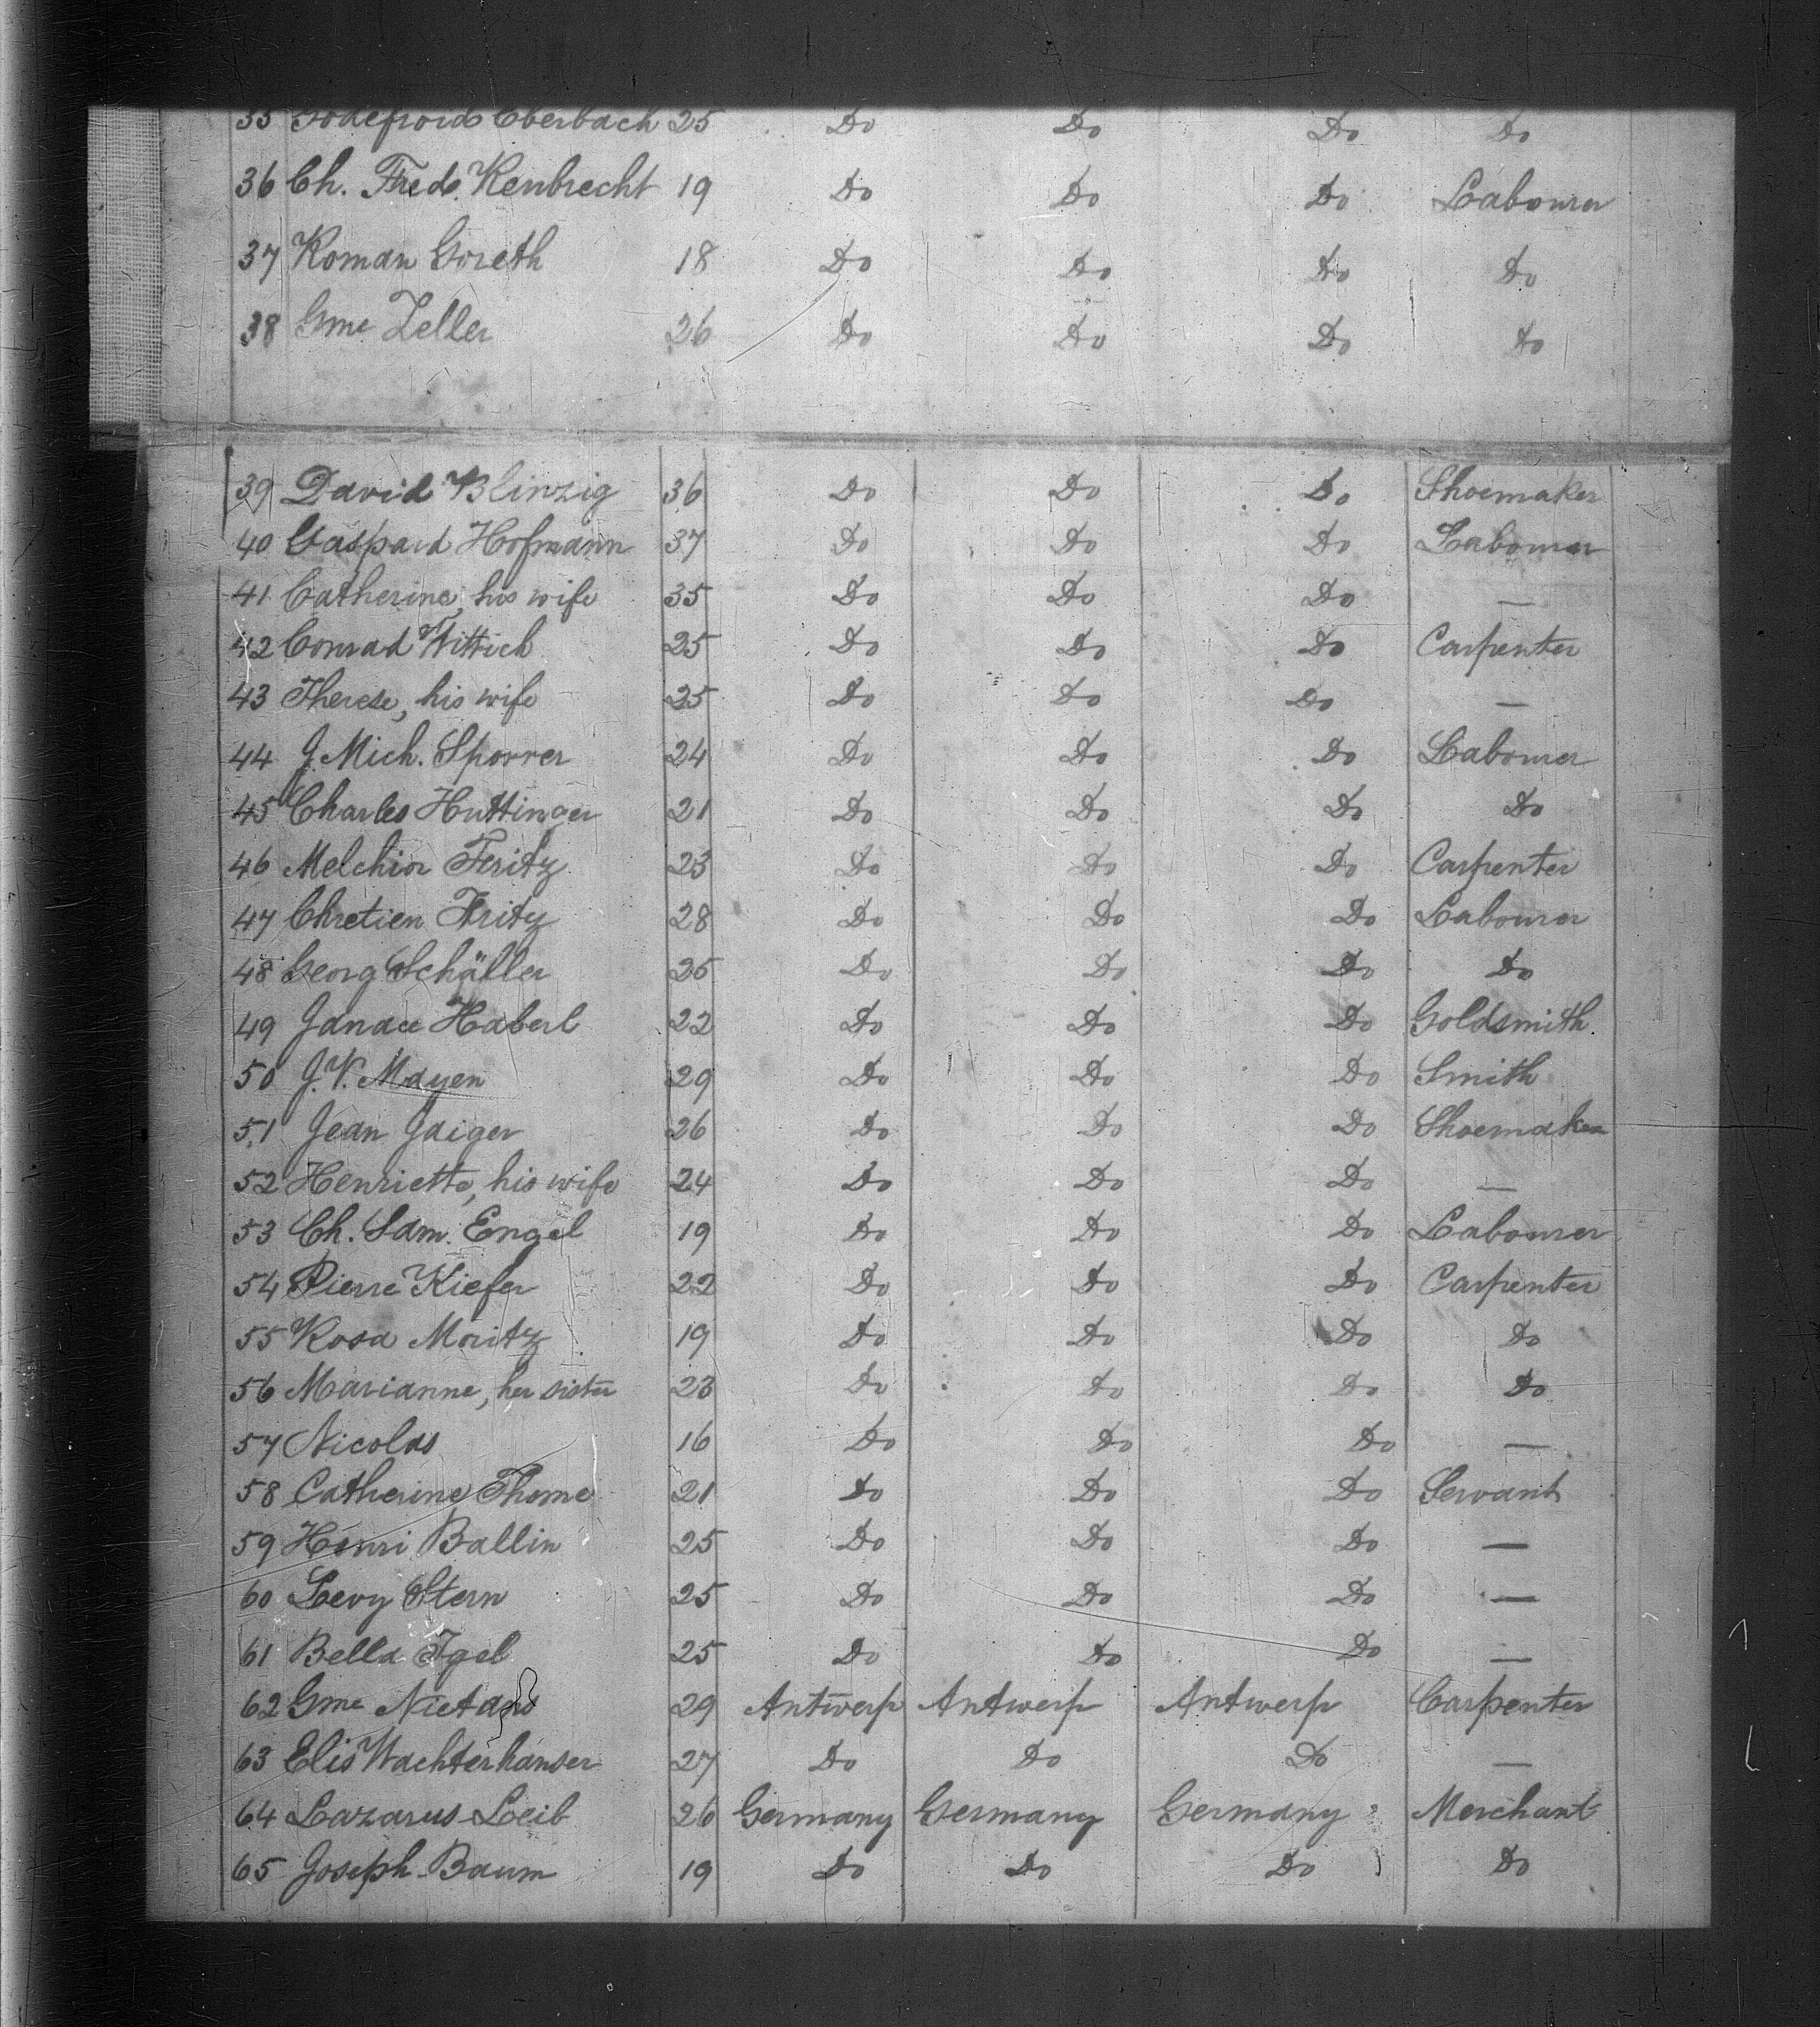 35 Godefroid Eberbach 25 Do Do Do Do
36 Ch. Fred. Kenbrecht 19 Do Do Do Labourer
37 Roman Goreth 18 Do Do Do Do
38 Gme Zeller 26 Do Do Do Do
39 David Blinzig 36 Do Do Do Shoemaker
40 Gaspard Hofmann 37 Do Do Do Labourer
41 Catherine, his wife 35 Do Do Do —
42 Conrad Wittich 25 Do Do Do Carpenter
43 Therese, his wife 25 Do Do Do —
44 J. Mich. Sporrer 24 Do Do Do Labourer
45 Charles Huttinger 21 Do Do Do Do
46 Melchior Fritz 23 Do Do Do Carpenter
47 Chretien Fritz 28 Do Do Do Labourer
48 Georg Schäller 25 Do Do Do Do
49 Haberl 22 Do Do Do Goldsmith.
50 J. V. Mayen 29 Do Do Do Smith
51 Jean Jaiger 26 Do Do Do Shoemaker
52 Henriette, his wife 24 Do Do Do —
53 Ch. Sam. Engel 19 Do Do Do Labourer
54 Pierre Kiefer 22 Do Do Do Carpenter
55 Rosa Moritz 19 Do Do Do Do
56 Marianne, her sister 23 Do Do Do Do
57 Nicolas 16 Do Do Do —
58 Catherine Thome 21 Do Do Do Servant
59 Henri Ballin 25 Do Do Do —
60 Levy Stern 25 Do Do Do —
61 Bella Igel 25 Do Do Do —
62 Gme 29 Antwerp Antwerp Antwerp Carpenter
63 Elis Wachterhauser 27 Do Do Do —
64 Lazarus Leib 26 Germany Germany Germany Merchant
65 Joseph Baum 19 Do Do Do Do